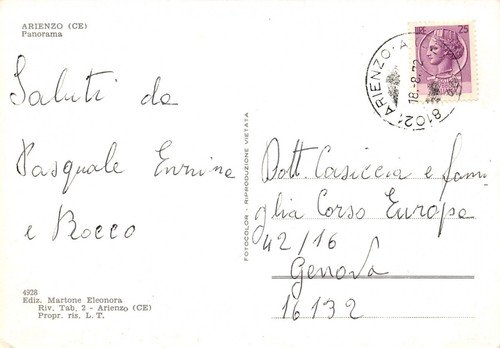 ARIENZO (CE)
Panorama
Saluti da
Pasquale Ennine
e Rocco
4928
Ediz. Martone Eleonora
Riv. Tab. 2 - Arienzo (CE)
Propr. ris. L. T.
FOTOCOLOR - RIPRODUZIONE VIETATA
LIRE 25
81021 ARIENZO
18-8-72
Dott. Casiccia e fami
glia Corso Europa
42/16
Genova
16132